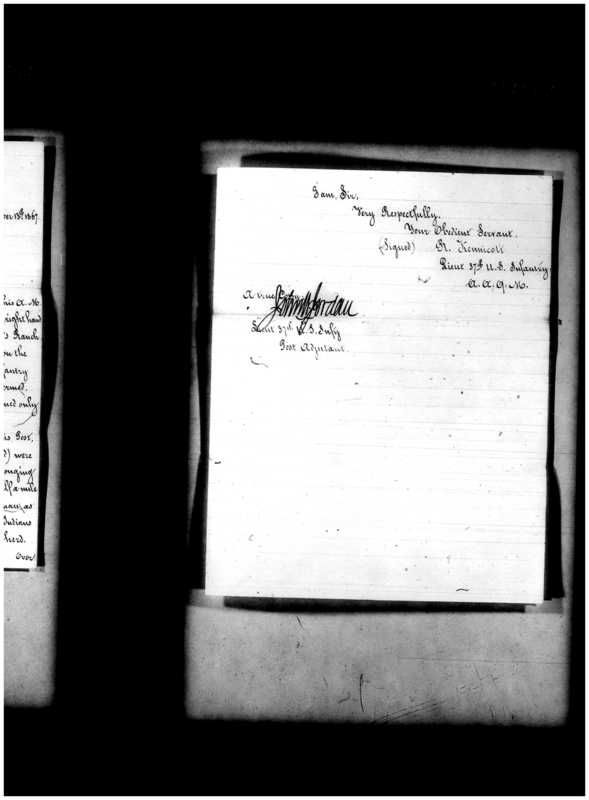 ber 13th 1867
his A.M.
right hand
's Ranch
on the
fantry
ormed.
ned only
is Post,
d) were
onging
lf a mile
as
Indians
herd.
Over
I am, Sir,
Very Respectfully,
Your Obedient Servant.
(Signed) R. Kennicott
Lieut 37th U.S. Infantry.
A. A. Q. M.
A true Copy
John W Jordan
Lieut 37th U.S. Infy
Post Adjutant.